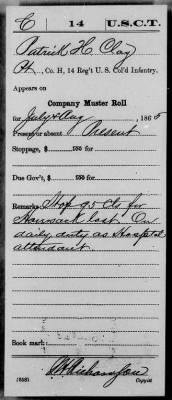 C 14 U.S.C.T.
Patrick H. Clay
Pt., Co. H, 14 Reg't U. S. Col'd Infantry.
Appears on
Company Muster Roll
for July & Aug, 1865
Present or absent Present
Stoppage, $ 100 for
Due Gov't, $ 100 for
Remarks: Stop 95 cts for
Haversack lost. On
daily duty as Hospital
attendant.
Book mark:
(858)
Copyist